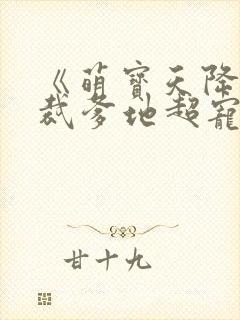 《萌寶天降
裁爹地超寵
甘十九